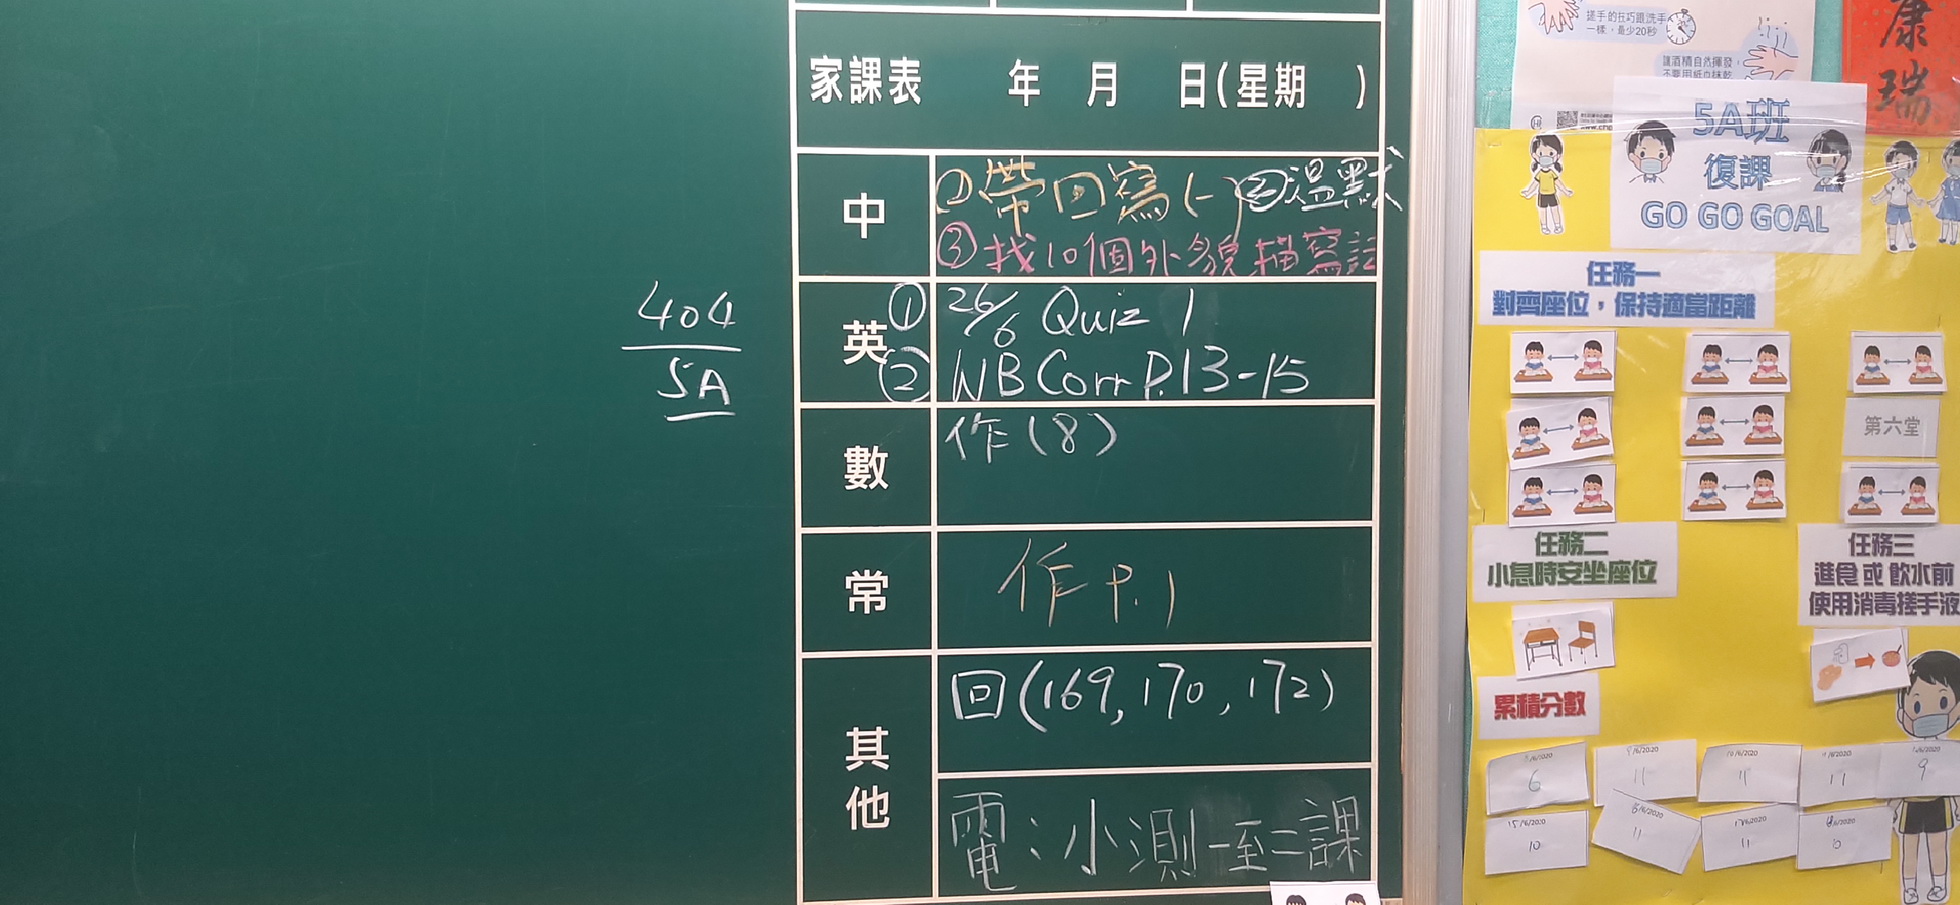 家課表 年 月 日(星期 )
中
①帶回寫(一) ②溫默
③找10個外貌描寫詞
404
5A
英
① 26/6 Quiz 1
② WB Corr P.13-15
數
作(8)
常
作 P.1
其他
回(169, 170, 172)
電：小測一至二課
搓手的技巧跟洗手
一樣，最少20秒
讓酒精自然揮發，
不要用紙巾抹乾
康
瑞
5A班
復課
GO GO GOAL
任務一
對齊座位，保持適當距離
第六堂
任務二
小息時安坐座位
任務三
進食 或 飲水前
使用消毒搓手液
累積分數
6
9/6/2020
11
10/6/2020
11
11
9
15/6/2020
10
11
11